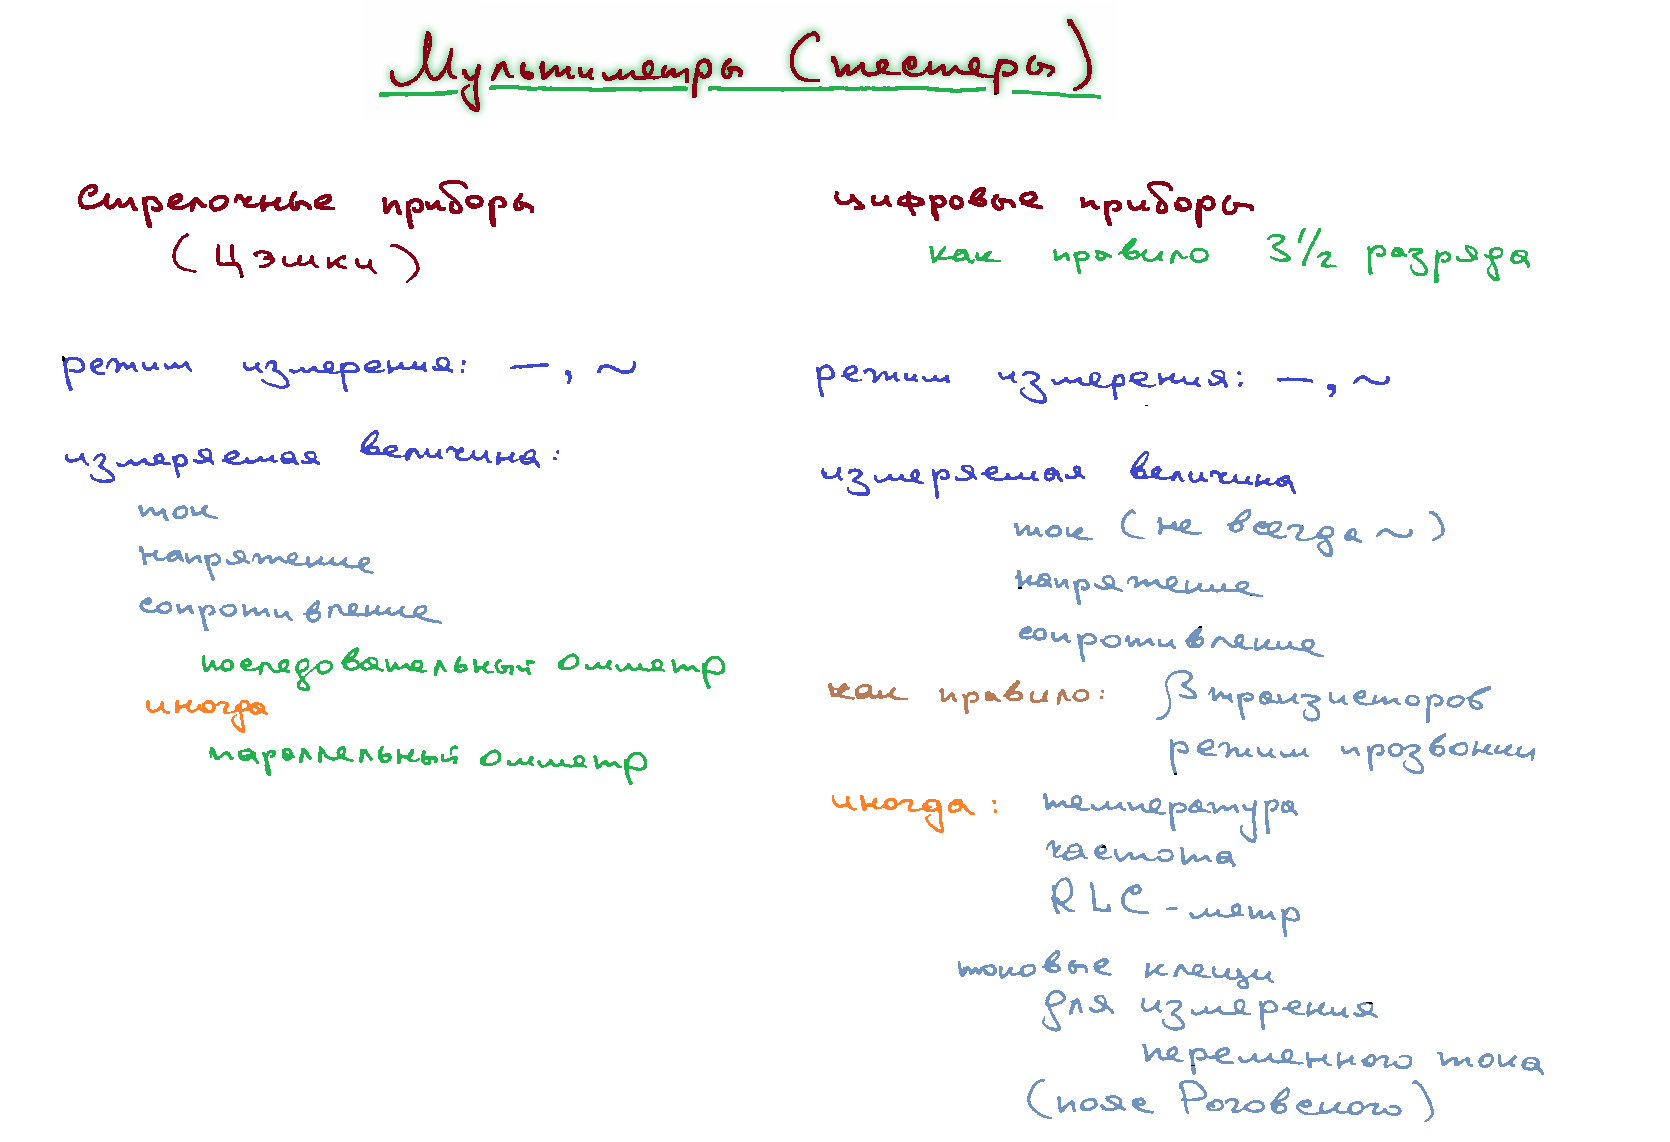 Мультиметры (тестеры)
Стрелочные приборы
(Цэшки)
режим измерения: —, ~
измеряемая величина:
ток
напряжение
сопротивление
последовательный омметр
иногда
параллельный омметр
цифровые приборы
как правило 3 1/2 разряда
режим измерения: —, ~
измеряемая величина
ток (не всегда ~)
напряжение
сопротивление
как правило: β транзисторов
режим прозвонки
иногда: температура
частота
RLC-метр
токовые клещи
для измерения
переменного тока
(пояс Роговского)